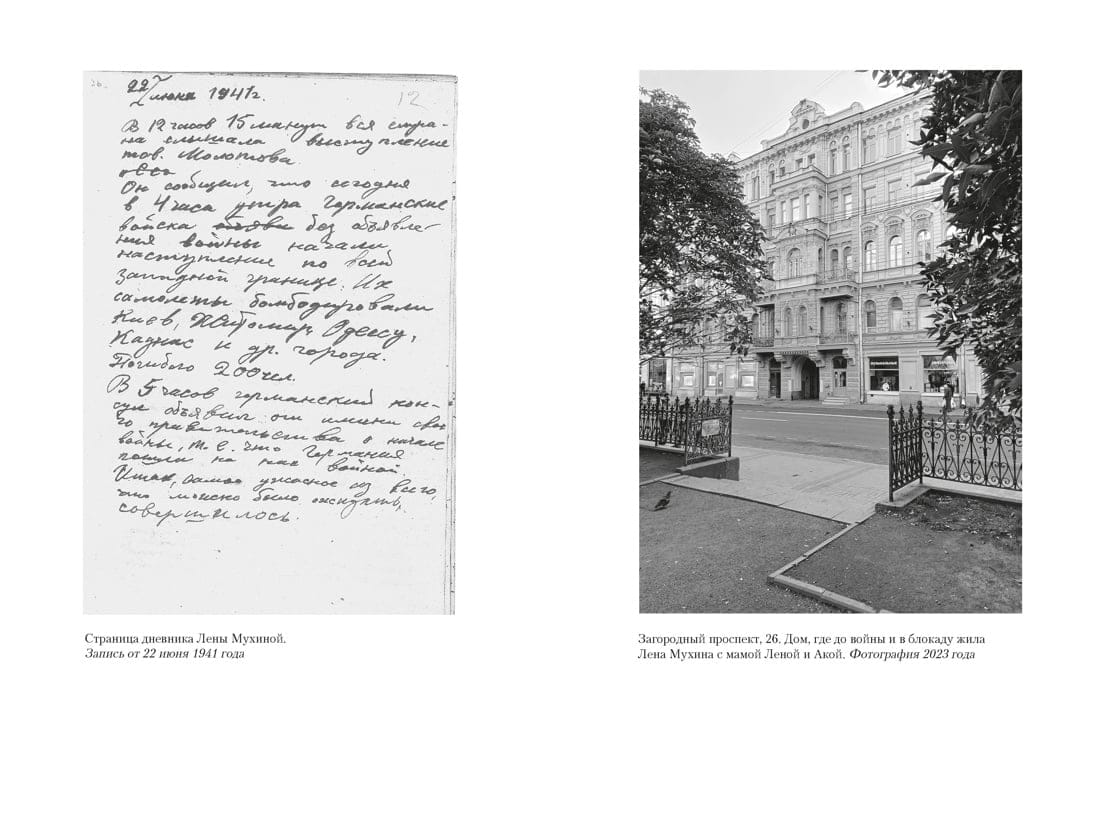 22/июня 1941 г.
12
В 12 часов 15 минут вся стра-
на слышала выступление
тов. Молотова.
Он сообщил, что сегодня
в 4 часа утра Германские
войска объяви без объявле-
ния войны начали
наступление по всей
западной границе. Их
самолеты бомбодировали
Киев, Житомир, Одессу,
Каунас и др. города.
Погибло 200 чел.
В 5 часов германский кон-
сул объявил от имени свое
го правительства о начале
войны, т. е. что Германия
пошла на нас войной.
Итак, самое ужасное из всего,
что можно было ожидать,
совершилось.
Страница дневника Лены Мухиной.
Запись от 22 июня 1941 года
Загородный проспект, 26. Дом, где до войны и в блокаду жила
Лена Мухина с мамой Леной и Акой. Фотография 2023 года